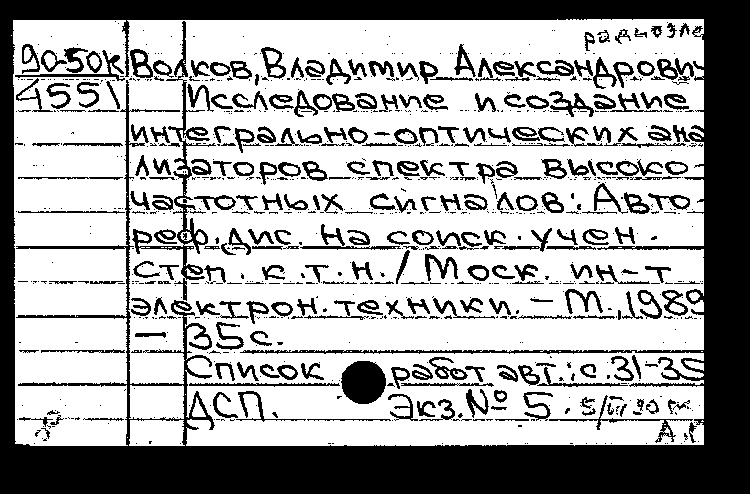 радиоэле
90-50к Волков, Владимир Александрович
4551 Исследование и создание
интегрально-оптических ана
лизаторов спектра высоко-
частотных сигналов: Авто-
реф. дис. на соиск. учен.
степ. к.т.н. / Моск. ин-т
электрон. техники. - М., 1989
- 35с.
Список работ авт.: с. 31-35
ДСП. Экз. № 5.